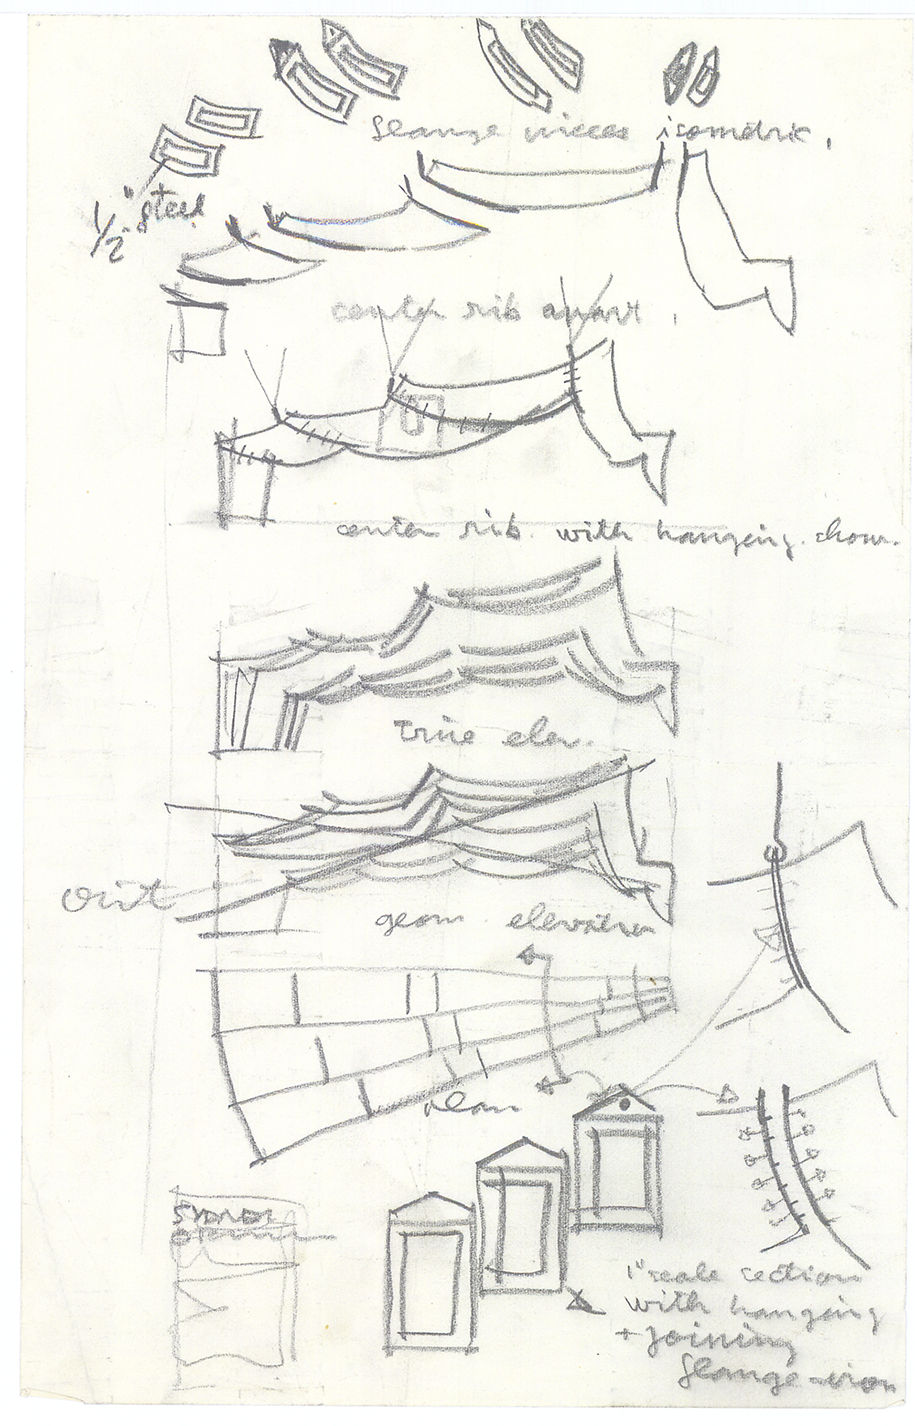 flange pieces isometric.
1/2" steel
center rib apart.
center rib with hanging show.
true elev.
out
geom. elevation
plan
SYDNEY
OPERA
1" scale section
with hanging
+ joining
flange-iron